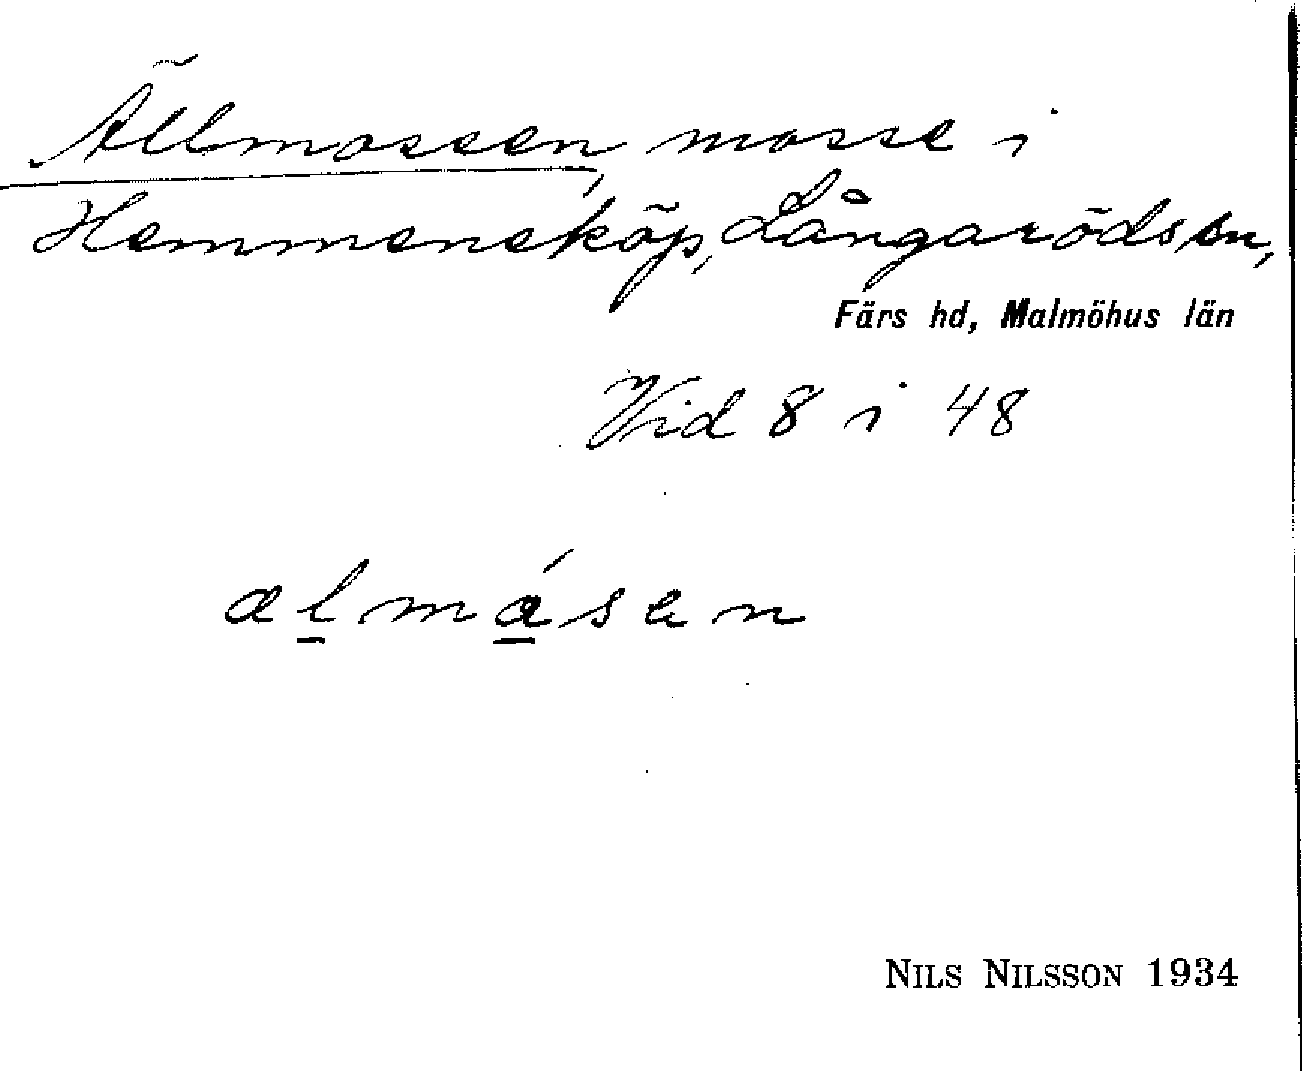 Ällmossen, mosse i
Hemmeneköp, Långaröds sn,
Färs hd, Malmöhus län
Vid 8 i 48
ælmásen
NILS NILSSON 1934